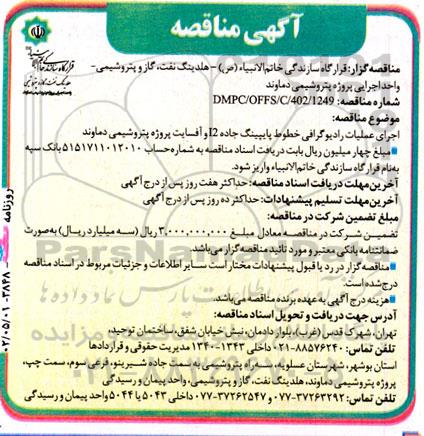 آگهی مناقصه
مناقصه‌گزار: قرارگاه سازندگی خاتم‌الانبیاء (ص) – هلدینگ نفت، گاز و پتروشیمی-
واحد اجرایی پروژه پتروشیمی دماوند
شماره مناقصه: DMPC/OFFS/C/402/1249
موضوع مناقصه:
اجرای عملیات رادیوگرافی خطوط پایپینگ جاده I2 و آفسایت پروژه پتروشیمی دماوند
■ مبلغ چهار میلیون ریال بابت دریافت اسناد مناقصه به شماره حساب ۵۱۵۱۷۱۱۰۱۲۰۱۰ بانک سپه
به‌نام قرارگاه سازندگی خاتم‌الانبیاء واریز شود.
آخرین مهلت دریافت اسناد مناقصه: حداکثر هفت روز پس از درج آگهی
آخرین مهلت تسلیم پیشنهادات: حداکثر ده روز پس از درج آگهی
مبلغ تضمین شرکت در مناقصه:
تضمین شرکت در مناقصه معادل مبلغ ۳,۰۰۰,۰۰۰,۰۰۰ ریال (سه میلیارد ریال) به‌صورت
ضمانتنامه بانکی معتبر و مورد تائید مناقصه گزار می‌باشد.
■ مناقصه گزار در رد یا قبول پیشنهادات مختار است سایر اطلاعات و جزئیات مربوط در اسناد مناقصه
درج شده است.
■ هزینه درج آگهی به عهده برنده مناقصه می‌باشد.
آدرس جهت دریافت و تحویل اسناد مناقصه:
تهران، شهرک قدس (غرب)، بلوار دادمان، نبش خیابان شفق، ساختمان توحید،
تلفن تماس: ۸۸۵۷۶۲۴۰-۰۲۱ داخلی ۱۳۴۳-۱۳۴۰ مدیریت حقوقی و قراردادها
استان بوشهر، شهرستان عسلویه، سه‌راه پسیتمی به سمت جاده شیرینو، فرعی سوم، سمت چپ،
پروژه پتروشیمی دماوند، هلدینگ نفت، گاز و پتروشیمی، واحد پیمان و رسیدگی
تلفن تماس: ۳۷۲۶۳۲۹۲-۰۷۷ و ۳۷۲۶۲۵۴۷-۰۷۷ داخلی ۵۰۴۳ یا ۵۰۴۴ واحد پیمان و رسیدگی
روزنامه
۰۲/۰۵/۰۱ - ۰۳۸۴۸
ParsNamadData
پارس نماد داده ها